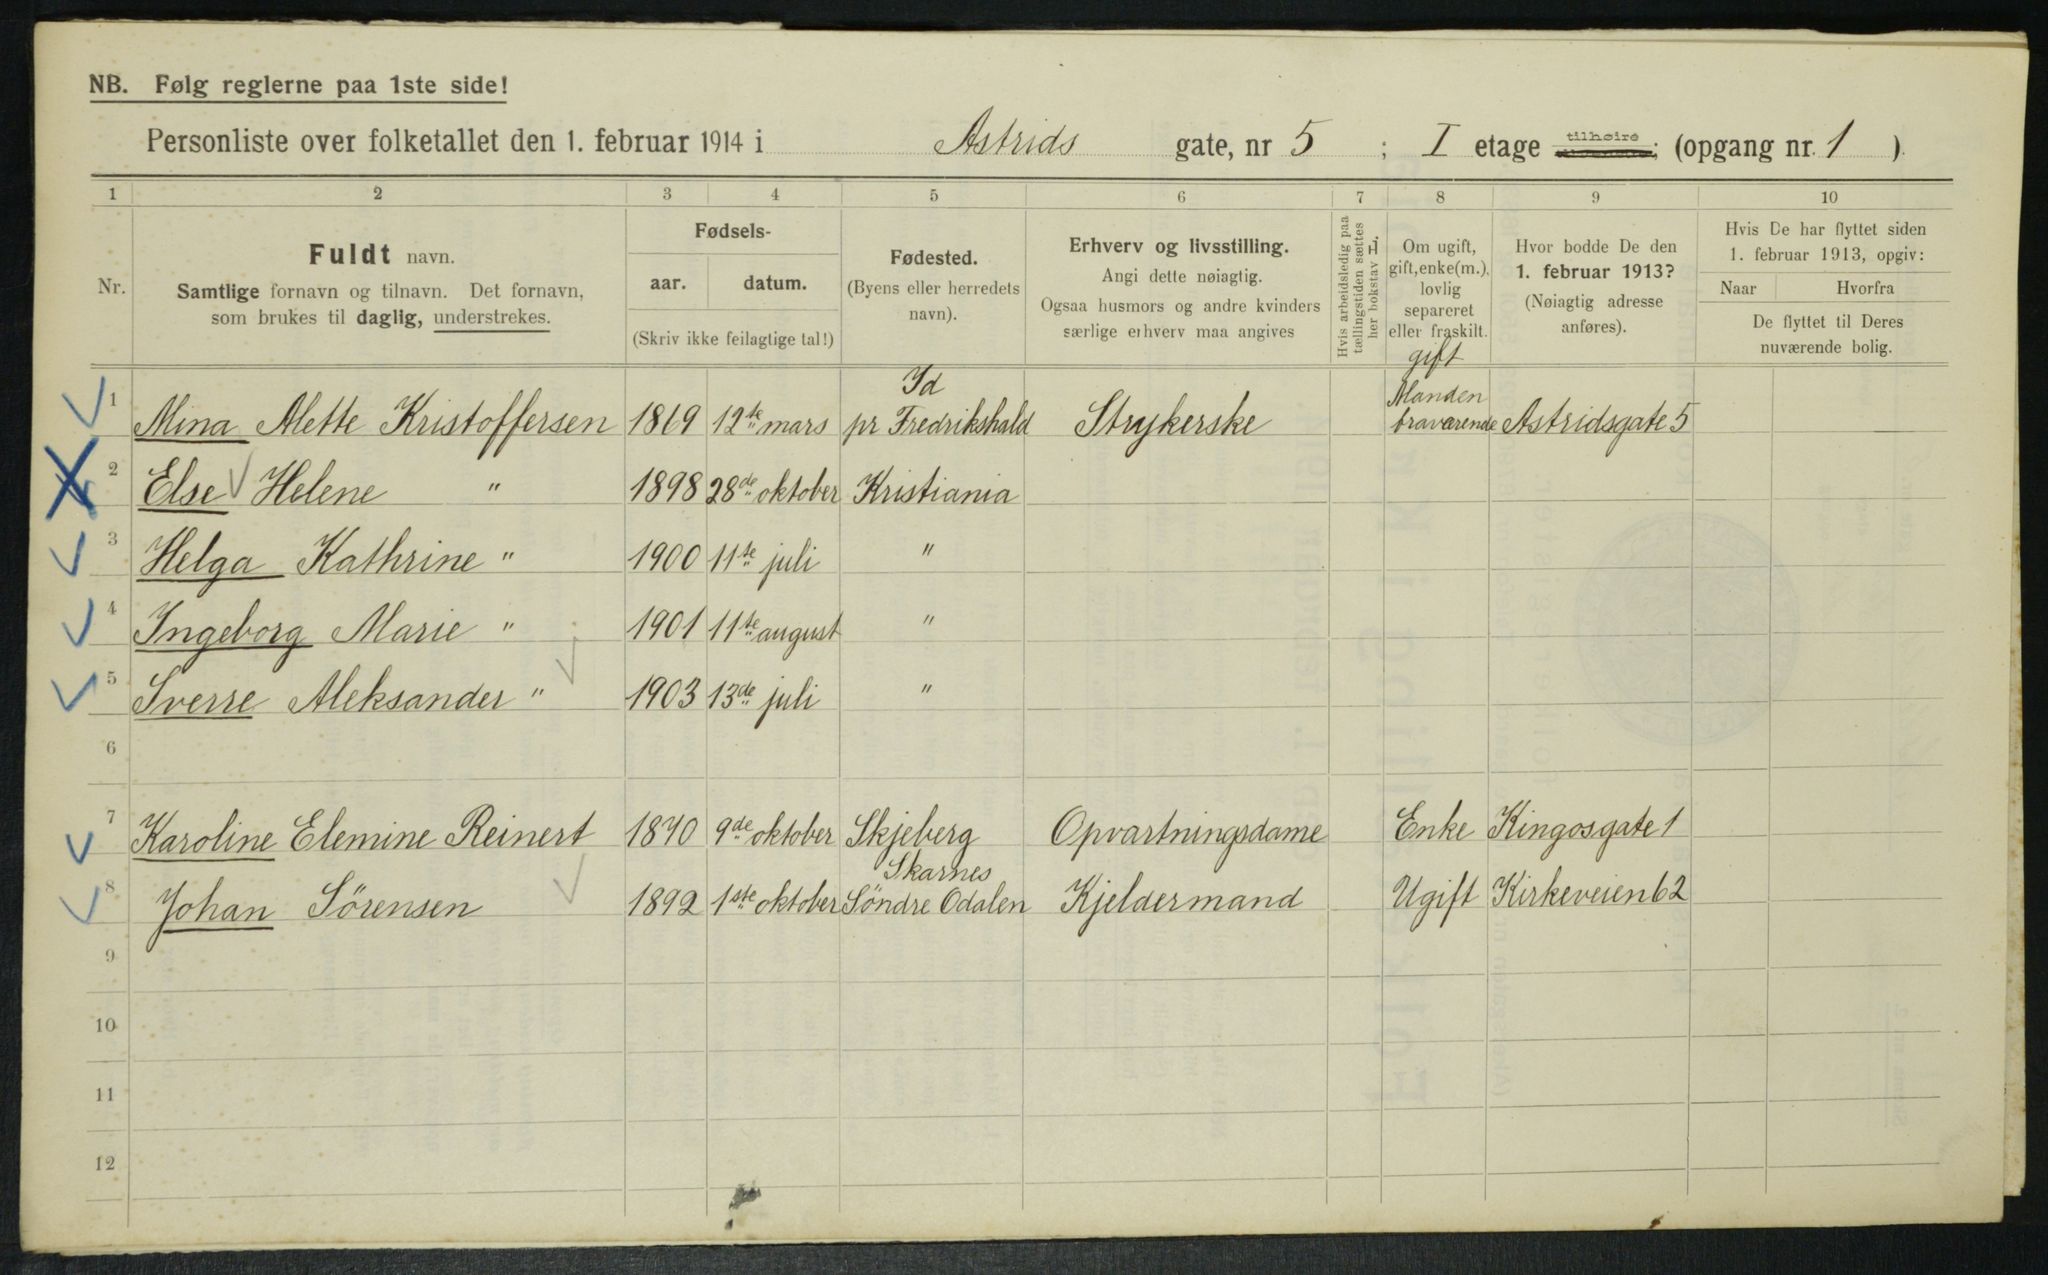 NB. Følg reglerne paa 1ste side!
Personliste over folketallet den 1. februar 1914 i Astrids gate, nr 5 ; I etage tilhøire; (opgang nr. 1 )
1 2 3 4 5 6 7 8 9 10
Nr.
Fuldt navn.
Samtlige fornavn og tilnavn. Det fornavn,
som brukes til daglig, understrekes.
Fødsels-
aar. datum.
(Skriv ikke feilagtige tal!)
Fødested.
(Byens eller herredets
navn).
Erhverv og livsstilling.
Angi dette nøiagtig.
Ogsaa husmors og andre kvinders
særlige erhverv maa angives
Hvis arbeidsledig paa
tællingstiden sættes
her bokstav L.
Om ugift,
gift, enke(m.),
lovlig
separeret
eller fraskilt.
Hvor bodde De den
1. februar 1913?
(Nøiagtig adresse
anføres).
Hvis De har flyttet siden
1. februar 1913, opgiv:
Naar Hvorfra
De flyttet til Deres
nuværende bolig.
gift
Id Manden
1 Mina Alette Kristoffersen 1869 12te mars pr Fredrikshald Strykerske fraværende Astridsgate 5
2 Else Helene " 1898 28de oktober Kristiania
3 Helga Kathrine " 1900 11te juli "
4 Ingeborg Marie " 1901 11te august "
5 Sverre Aleksander " 1903 13de juli "
6
7 Karoline Elemine Reinert 1870 9de oktober Skjeberg Opvartningsdame Enke Kingosgate 1
Skarnes
8 Johan Sörensen 1892 1ste oktober Söndre Odalen Kjeldermand Ugift Kirkeveien 62
9
10
11
12